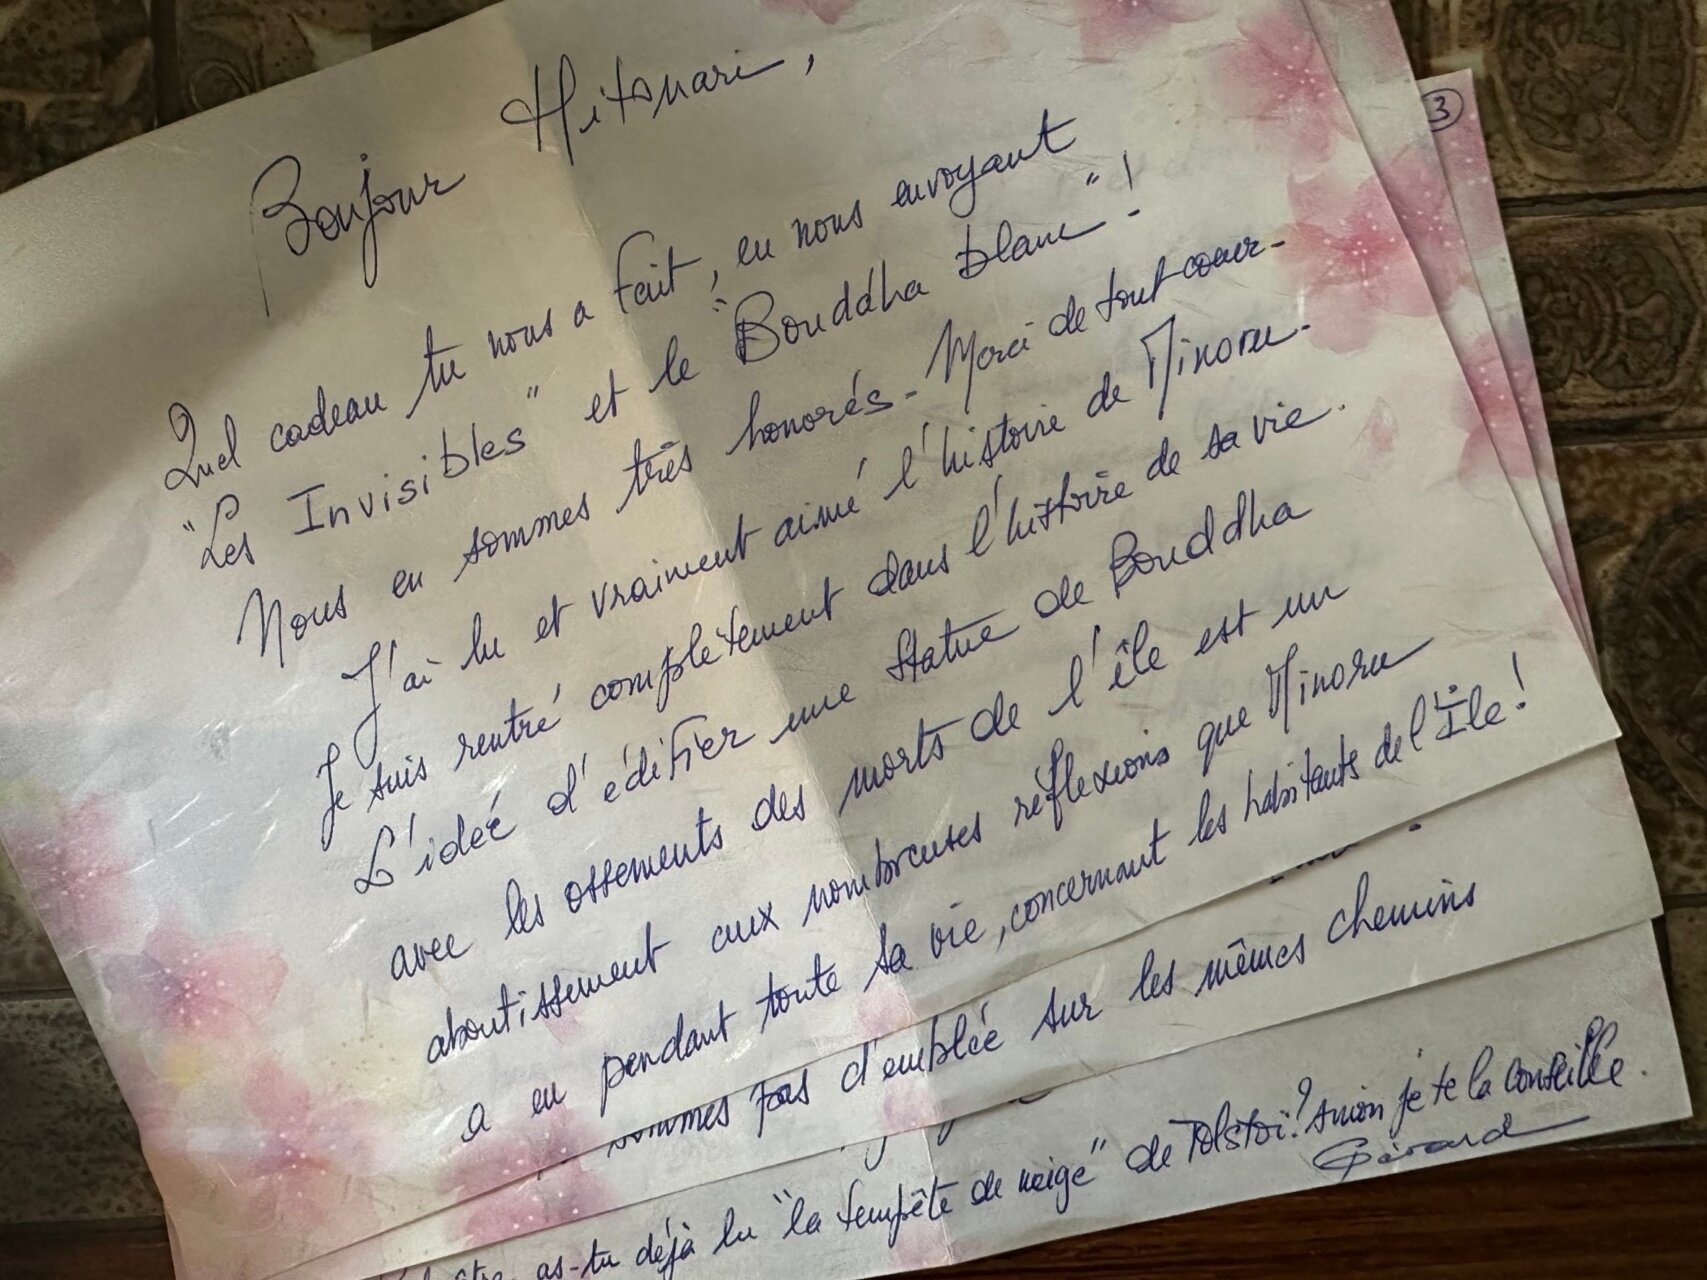 Bonjour Hitonari,
Quel cadeau tu nous a fait, en nous envoyant
"Les Invisibles" et le "Bouddha blanc" !
Nous en sommes très honorés. Merci de tout cœur.
J'ai lu et vraiment aimé l'histoire de Minoru.
Je suis rentré complètement dans l'histoire de sa vie.
L'idée d'édifier une statue de Bouddha
avec les ossements des morts de l'île est un
aboutissement aux nombreuses réflexions que Minoru
a eu pendant toute sa vie, concernant les habitants de l'Île !
3
sommes pas d'emblée sur les mêmes chemins
as-tu déjà lu "la tempête de neige" de Tolstoï? Sinon je te la conseille.
Gérard